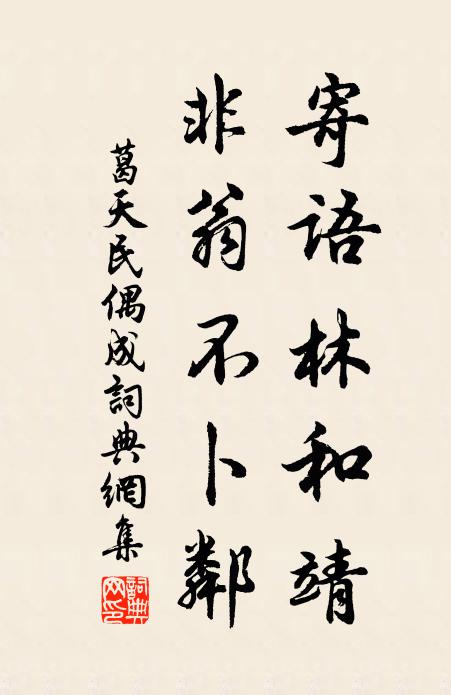 寄語林和靖
非翁不卜鄰
葛天民偶成詞典網集
詞典網印